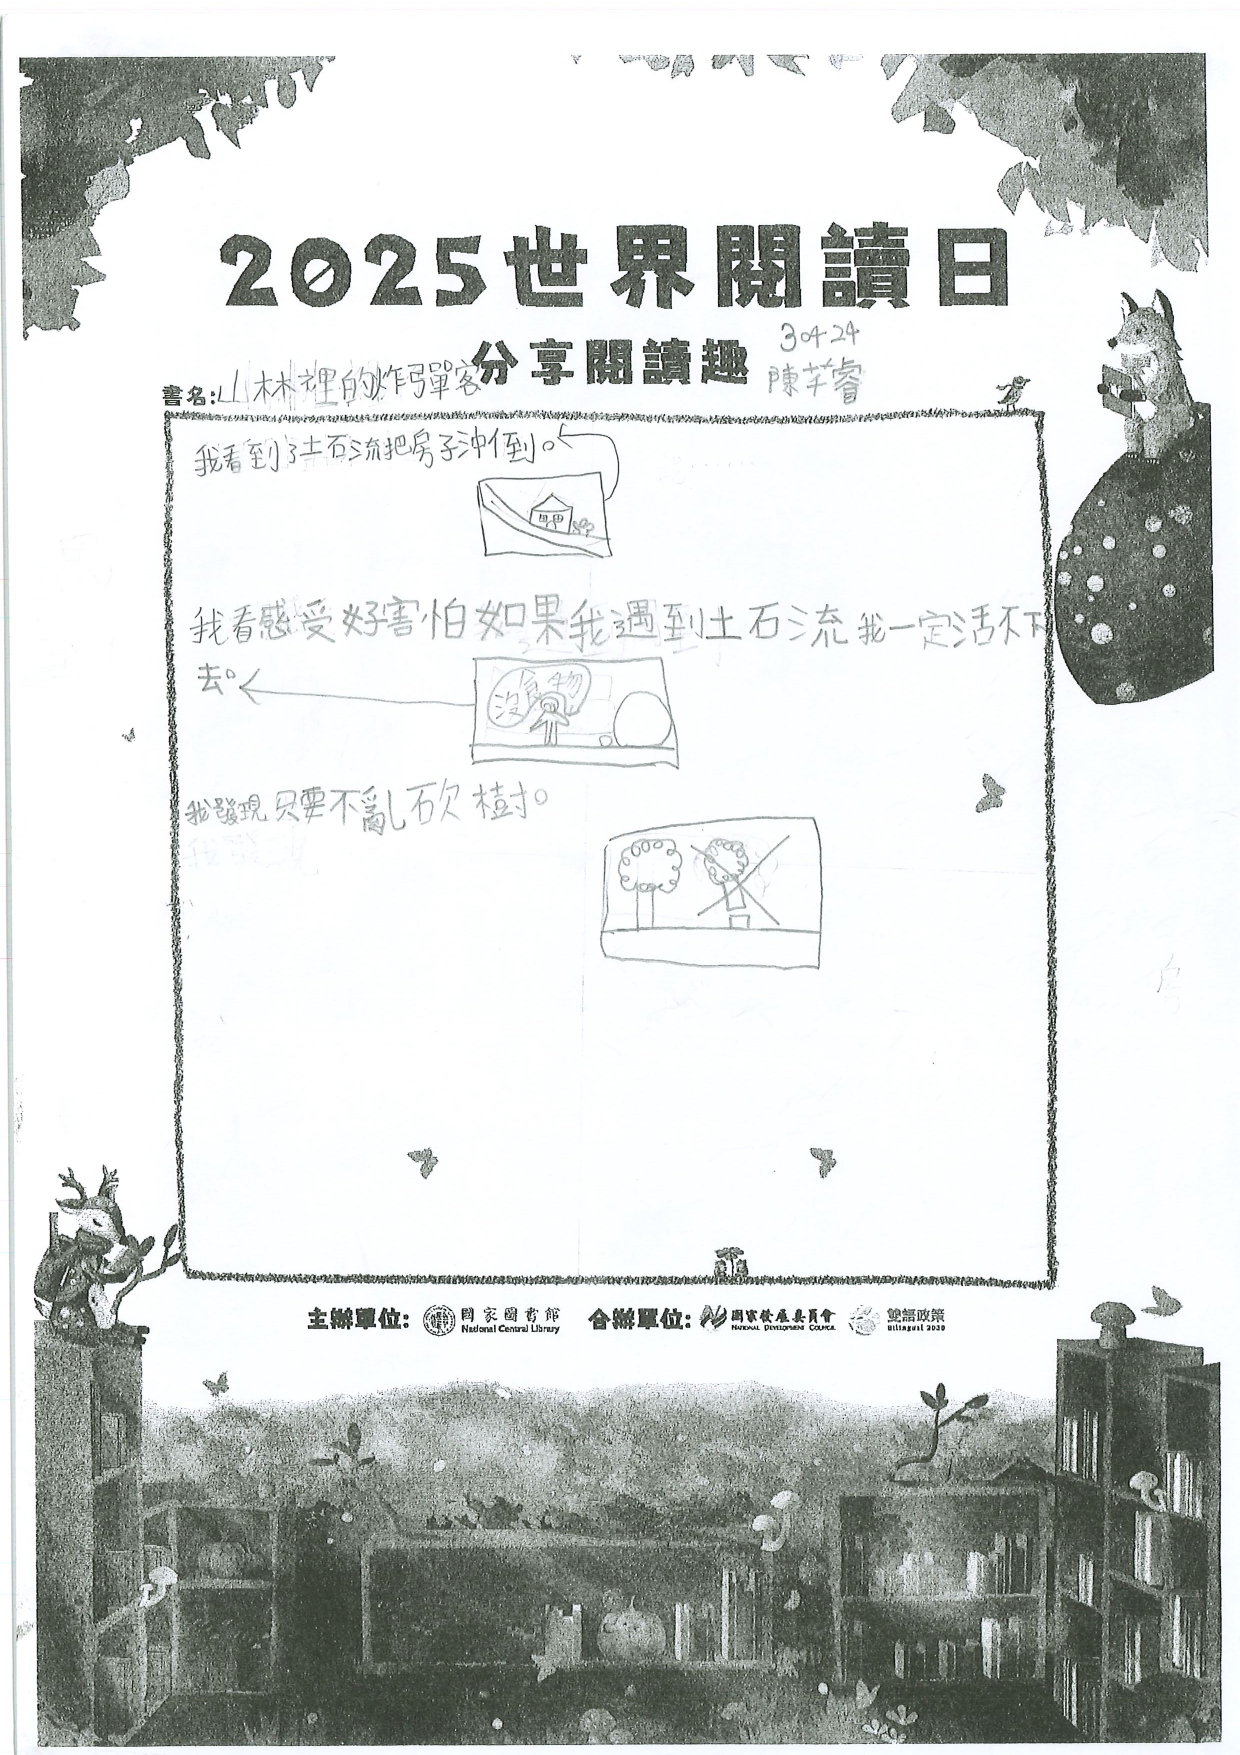 2025世界閱讀日
分享閱讀趣
30424
陳芊睿
書名:山林裡的炸彈客
我看到了土石流把房子沖倒。
我看感受好害怕如果我遇到土石流我一定活不下
去。
沒食物
我發現只要不亂砍樹。
主辦單位: 國家圖書館 National Central Library 合辦單位: 國家發展委員會 NATIONAL DEVELOPMENT COUNCIL 雙語政策 Bilingual 2030